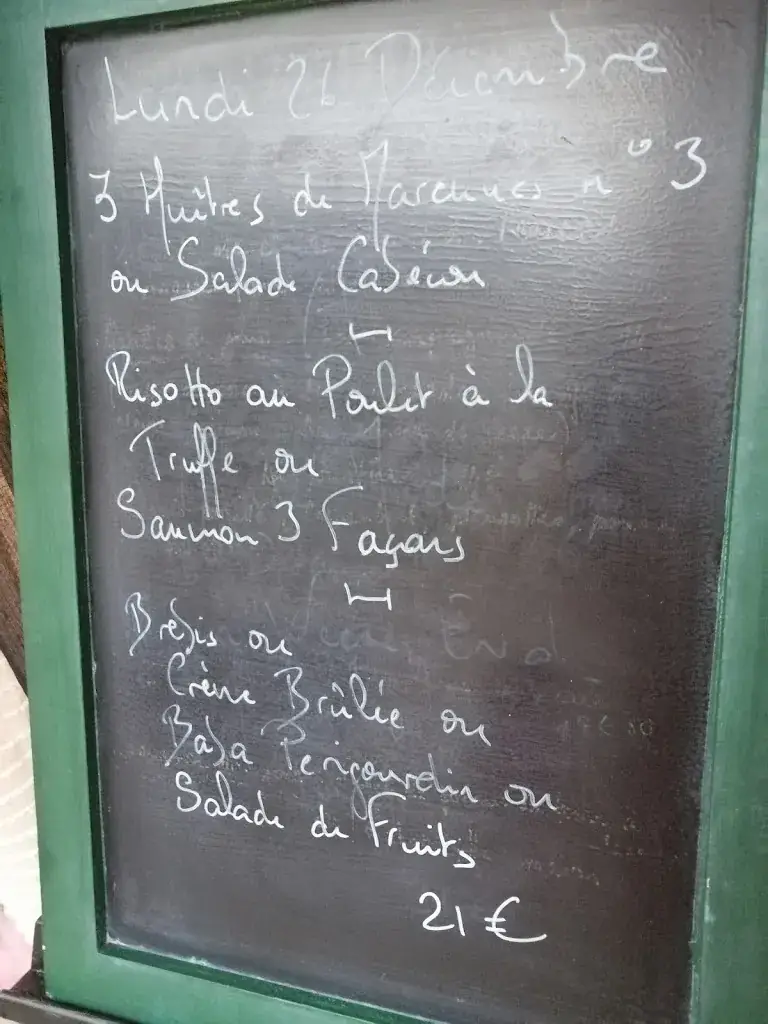 Lundi 26 Décembre
3 Huîtres de Marennes n° 3
ou Salade Cabécou
Risotto au Poulet à la
Truffe ou
Saumon 3 Façons
Brebis ou
Crème Brûlée ou
Baba Perigourdin ou
Salade de Fruits
21 €